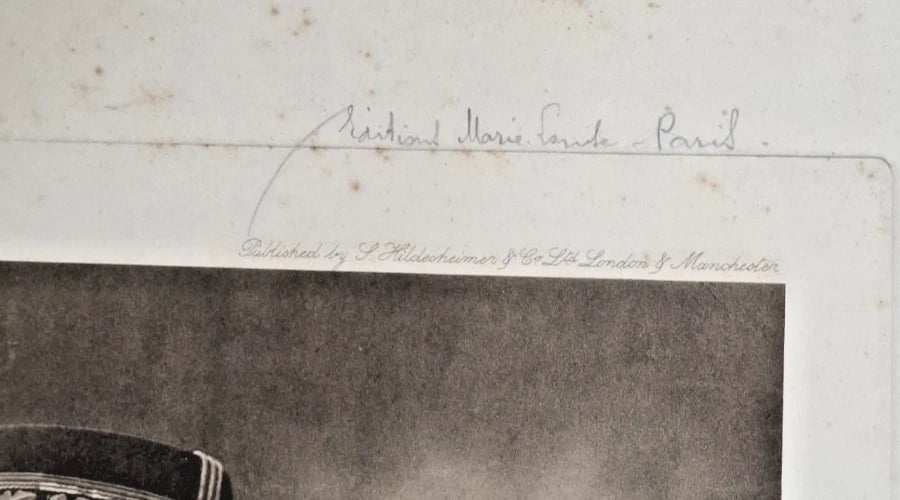 Editions Marie. Comte - Paris.
Published by S. Hildesheimer & Co Ltd London & Manchester